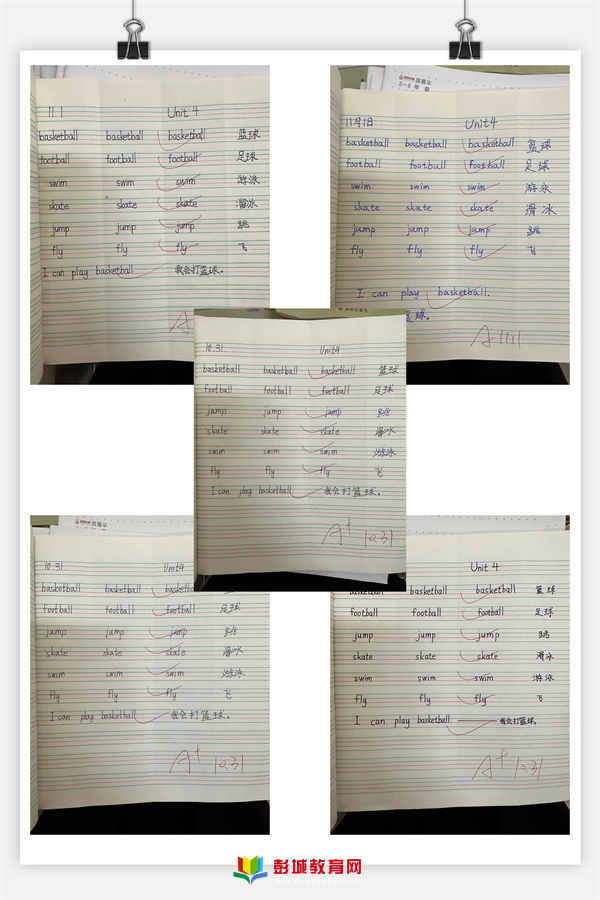 11.1 Unit 4
basketball basketball basketball 篮球
football football football 足球
swim swim swim 游泳
skate skate skate 溜冰
jump jump jump 跳
fly fly fly 飞
I can play basketball 我会打篮球。
A
11月1日 Unit4
basketball basketball basketball 篮球
football football football 足球
swim swim swim 游泳
skate skate skate 滑冰
jump jump jump 跳
fly fly fly 飞
I can play basketball.
篮球。
A 1111
10.31 Unit4
basketball basketball basketball 篮球
football football football 足球
jump jump jump 跳
skate skate skate 滑冰
swim swim swim 游泳
fly fly fly 飞
I can play basketball 我会打篮球。
A+ 10.31
10.31 Unit4
basketball basketball
football football football 足球
jump jump jump 跳
skate skate skate 滑冰
swim swim swim 游泳
fly fly fly 飞
I can play basketball 我会打篮球。
A+ 10.31
Unit 4
basketball basketball 篮球
football football football 足球
jump jump jump 跳
skate skate skate 滑冰
swim swim swim 游泳
fly fly fly 飞
I can play basketball. 我会打篮球。
A+ 10.31
彭城教育网